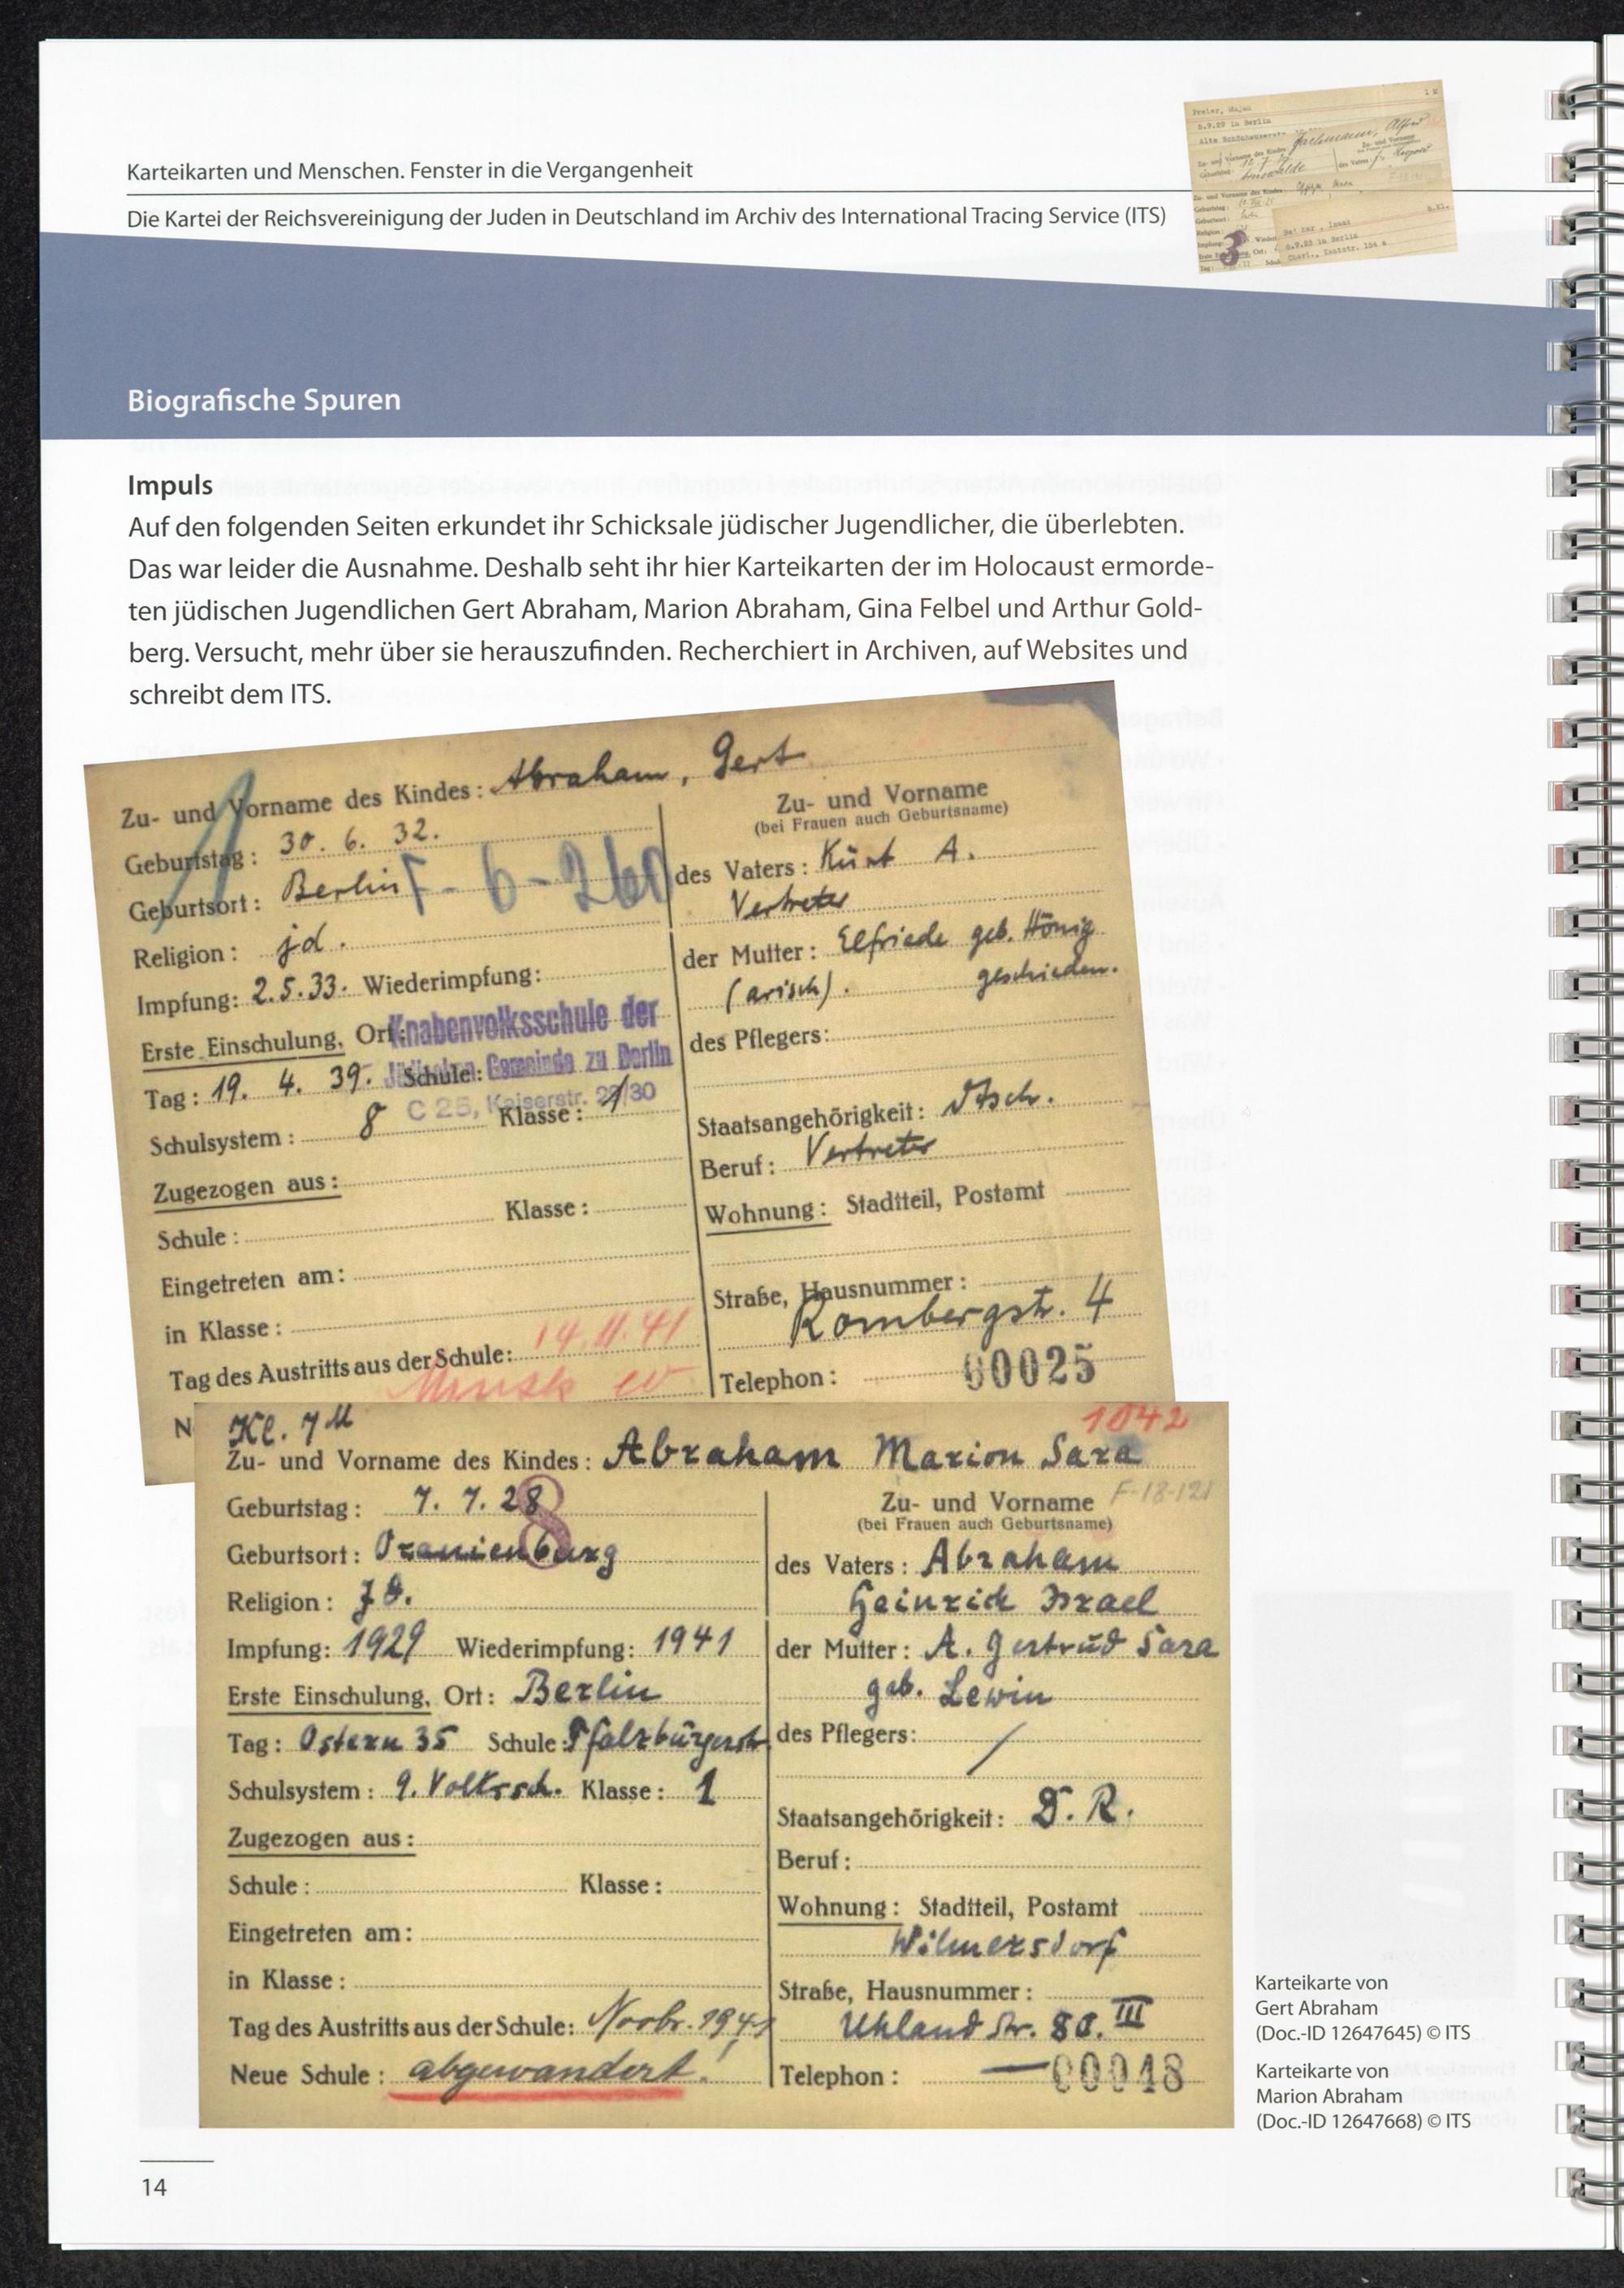 Karteikarten und Menschen. Fenster in die Vergangenheit
Die Kartei der Reichsvereinigung der Juden in Deutschland im Archiv des International Tracing Service (ITS)
6.9.29 in Berlin
Zu- und Vorname des Kindes
Geburtstag:
Geburtsort:
Religion:
3
6.9.23 in Berlin
Biografische Spuren
Impuls
Auf den folgenden Seiten erkundet ihr Schicksale jüdischer Jugendlicher, die überlebten.
Das war leider die Ausnahme. Deshalb seht ihr hier Karteikarten der im Holocaust ermorde-
ten jüdischen Jugendlichen Gert Abraham, Marion Abraham, Gina Felbel und Arthur Gold-
berg. Versucht, mehr über sie herauszufinden. Recherchiert in Archiven, auf Websites und
schreibt dem ITS.
1
Zu- und Vorname des Kindes: Abraham, Gert
Geburtstag: 30. 6. 32.
Geburtsort: Berlin F-6-260
Religion: jd.
Impfung: 2.5.33. Wiederimpfung:
Erste Einschulung, Ort: Knabenvolksschule der
Tag: 19. 4. 39. Schule: Jüdischen Gemeinde zu Berlin
C 25, Kaiserstr. 29/30
Schulsystem: 8 Klasse: 1
Zugezogen aus:
Schule: Klasse:
Eingetreten am:
in Klasse:
Tag des Austritts aus der Schule: 14.11.41
Minsk
N
Zu- und Vorname
(bei Frauen auch Geburtsname)
des Vaters: Kurt A.
Vertreter
der Mutter: Elfriede geb. Hönig
(arisch). geschieden.
des Pflegers:
Staatsangehörigkeit: Dtsch.
Beruf: Vertreter
Wohnung: Stadtteil, Postamt
Straße, Hausnummer:
Rombergstr. 4
Telephon: 00025
Kl. 7M
1042
Zu- und Vorname des Kindes: Abraham Marion Sara
Geburtstag: 7. 7. 28
8
Geburtsort: Oranienburg
Religion: Jd.
Impfung: 1929 Wiederimpfung: 1941
Erste Einschulung, Ort: Berlin
Tag: Ostern 35 Schule: Pfalzburgerstr.
Schulsystem: 9. Volkssch. Klasse: 1
Zugezogen aus:
Schule: Klasse:
Eingetreten am:
in Klasse:
Tag des Austritts aus der Schule: Novbr. 1941
Neue Schule: abgewandert!
Zu- und Vorname F-18-121
(bei Frauen auch Geburtsname)
des Vaters: Abraham
Heinrich Israel
der Mutter: A. Gertrud Sara
geb. Lewin
des Pflegers: /
Staatsangehörigkeit: D. R.
Beruf:
Wohnung: Stadtteil, Postamt
Wilmersdorf
Straße, Hausnummer:
Uhland Str. 80. III
Telephon: — 00048
Karteikarte von
Gert Abraham
(Doc.-ID 12647645) © ITS
Karteikarte von
Marion Abraham
(Doc.-ID 12647668) © ITS
14